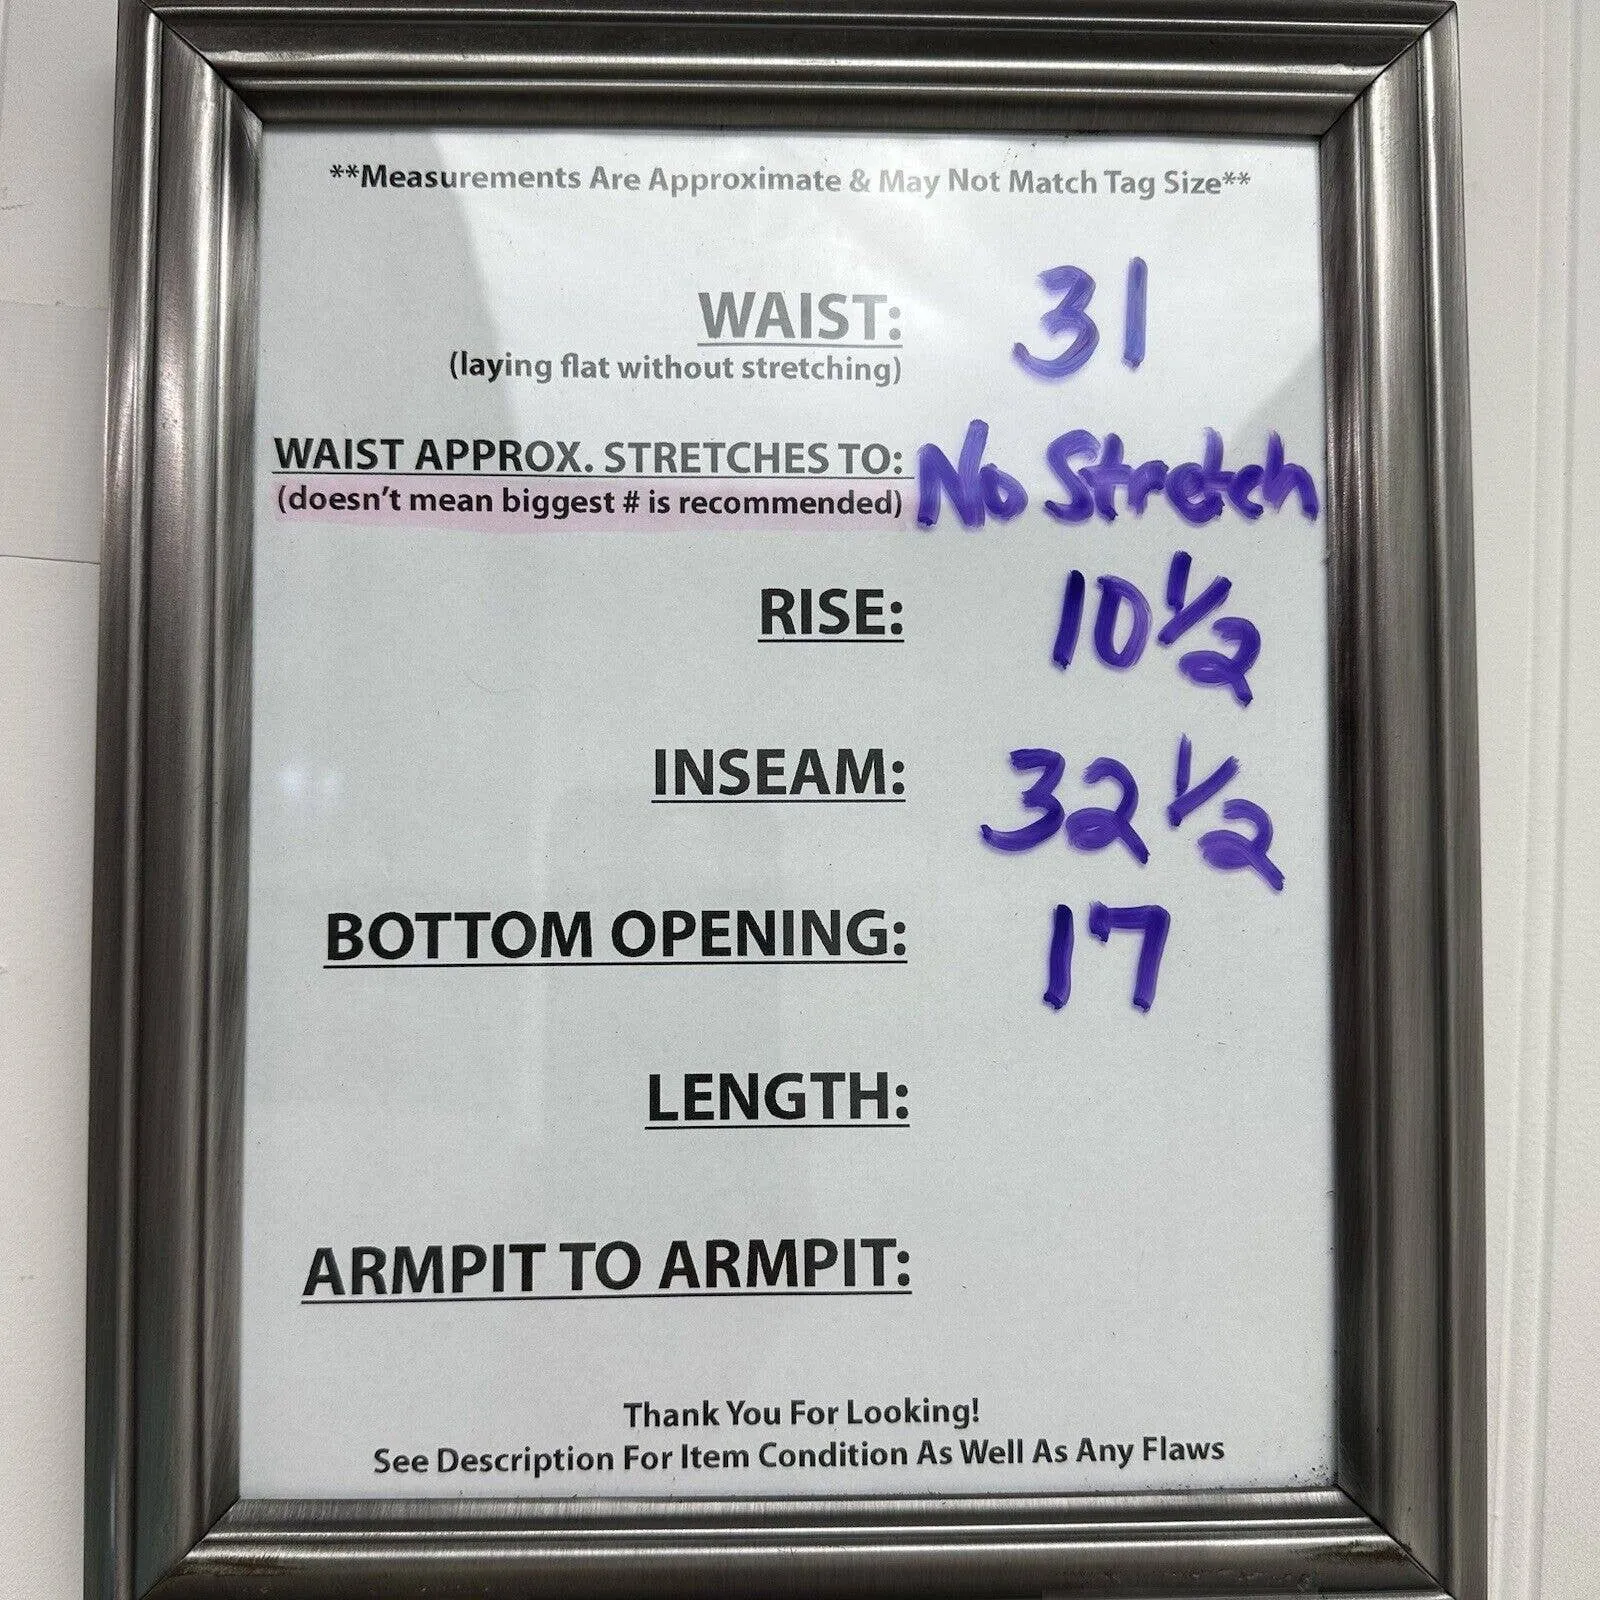 **Measurements Are Approximate & May Not Match Tag Size**
WAIST: 31
(laying flat without stretching)
WAIST APPROX. STRETCHES TO: No Stretch
(doesn't mean biggest # is recommended)
RISE: 10 1/2
INSEAM: 32 1/2
BOTTOM OPENING: 17
LENGTH:
ARMPIT TO ARMPIT:
Thank You For Looking!
See Description For Item Condition As Well As Any Flaws